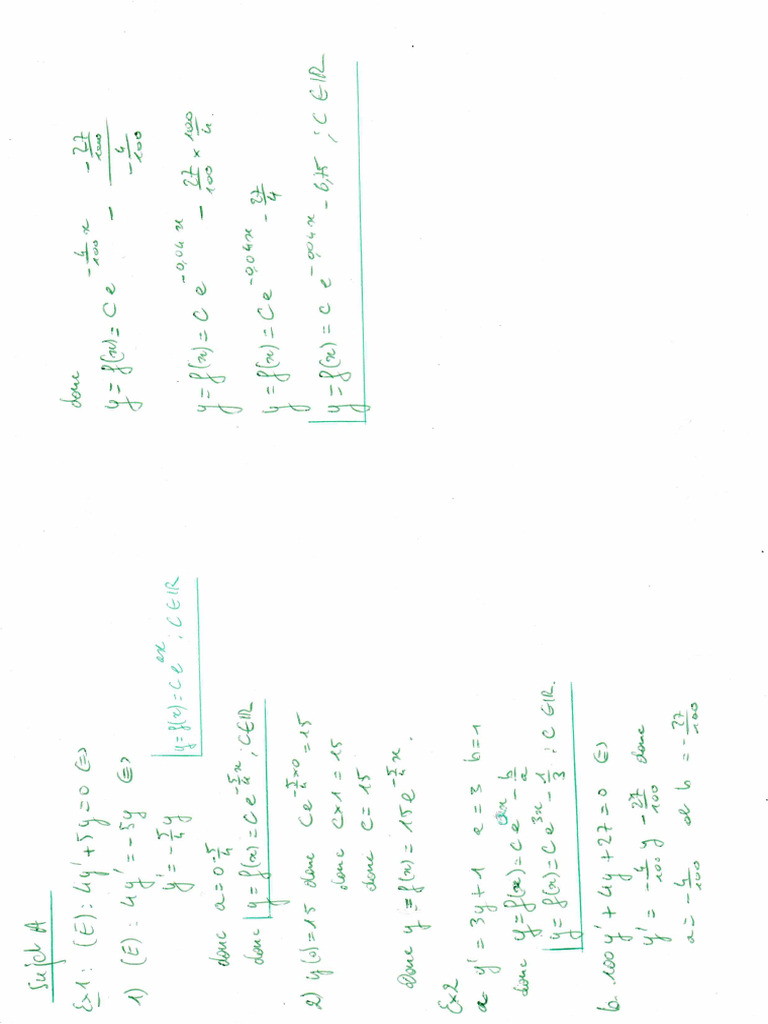 Sujet A
Ex1 : (E) : 4y' + 5y = 0 (=)
1) (E) : 4y' = -5y (=)
y' = -5/4 y
y = f(x) = C e^{ax} ; C ∈ IR
donc a = -5/4
donc y = f(x) = C e^{-5/4 x} ; C ∈ IR
2) y(0) = 15 donc C e^{-5/4 × 0} = 15
donc C × 1 = 15
donc C = 15
Donc y = f(x) = 15 e^{-5/4 x}.
Ex2
a- y' = 3y + 1 a = 3 b = 1
donc y = f(x) = C e^{ax} - b/a
y = f(x) = C e^{3x} - 1/3 ; C ∈ IR.
b. 100y' + 4y + 27 = 0 (=)
y' = -4/100 y - 27/100 donc
a = -4/100 et b = -27/100
donc
y = f(x) = C e^{-4/100 x} - (-27/100)/(-4/100)
y = f(x) = C e^{-0,04x} - 27/100 × 100/4.
y = f(x) = C e^{-0,04x} - 27/4
y = f(x) = C e^{-0,04x} - 6,75 ; C ∈ IR